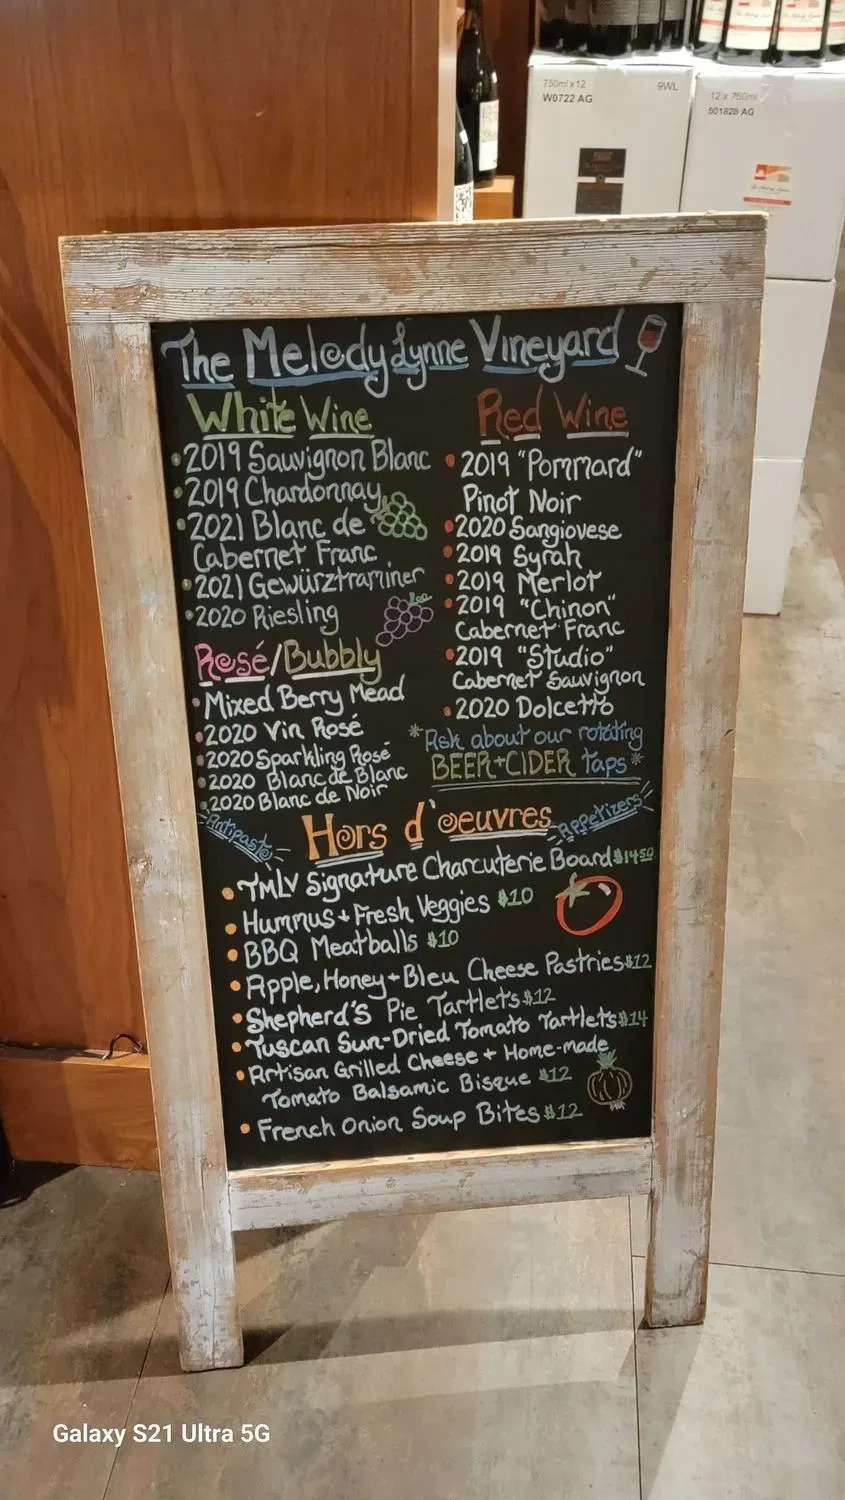 750ml x 12
9WL
W0722 AG
12 x 750ml
501828 AG
The Melody Lynne Vineyard
White Wine
2019 Sauvignon Blanc
2019 Chardonnay
2021 Blanc de
Cabernet Franc
2021 Gewürztraminer
2020 Riesling
Rosé/Bubbly
Mixed Berry Mead
2020 Vin Rosé
2020 Sparkling Rosé
2020 Blanc de Blanc
2020 Blanc de Noir
Red Wine
2019 "Pommard"
Pinot Noir
2020 Sangiovese
2019 Syrah
2019 Merlot
2019 "Chinon"
Cabernet Franc
2019 "Studio"
Cabernet Sauvignon
2020 Dolcetto
*Ask about our rotating
BEER+CIDER taps*
Antipasto
Hors d'oeuvres
Appetizers
TMLV Signature Charcuterie Board $14.50
Hummus + Fresh Veggies $10
BBQ Meatballs $10
Apple, Honey + Bleu Cheese Pastries $12
Shepherd's Pie Tartlets $12
Tuscan Sun-Dried Tomato Tartlets $14
Artisan Grilled Cheese + Home-made
Tomato Balsamic Bisque $12
French Onion Soup Bites $12
Galaxy S21 Ultra 5G